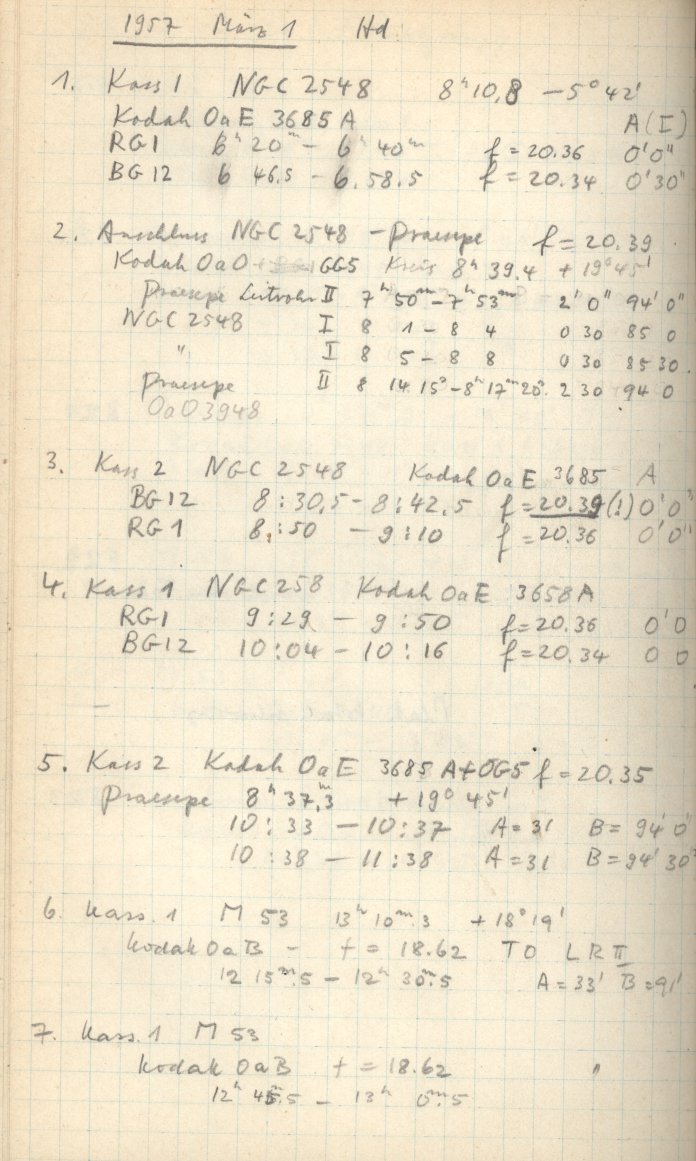 1957 März 1 Hd
1. Kass 1 NGC 2548 8ʰ10,8 −5° 42'
Kodak OaE 3685 A A(I)
RG1 6ʰ 20ᵐ − 6ʰ 40ᵐ f = 20.36 0'0"
BG12 6 46.5 − 6.58.5 f = 20.34 0'30"
2. Anschluss NGC 2548 − Praesepe f = 20.39
Kodak OaO GG5 Kreis 8ʰ 39.4 + 19° 45'
Praesepe Leitrohr II 7ʰ 50ᵐ − 7ʰ 53ᵐ 2' 0" 94' 0"
NGC 2548 I 8 1 − 8 4 0 30 85 0
" I 8 5 − 8 8 0 30 85 30
Praesepe II 8 14 15ˢ − 8ʰ 17ᵐ 20ˢ 2 30 94 0
OaO 3948
3. Kass 2 NGC 2548 Kodak OaE 3685 A
BG12 8:30,5 − 8:42,5 f = 20.39 (!) 0'0"
RG1 8:50 − 9:10 f = 20.36 0'0"
4. Kass 1 NGC 258 Kodak OaE 3658 A
RG1 9:29 − 9:50 f = 20.36 0'0
BG12 10:04 − 10:16 f = 20.34 0 0
5. Kass 2 Kodak OaE 3685 A + OG5 f = 20.35
Praesepe 8ʰ 37,ᵐ3 + 19° 45'
10:33 − 10:37 A = 31 B = 94' 0'
10:38 − 11:38 A = 31 B = 94' 30"
6. Kass. 1 M 53 13ʰ 10ᵐ.3 + 18° 19'
Kodak OaB − f = 18.62 TO LR II
12 15ᵐ.5 − 12ʰ 30ᵐ.5 A = 33' B = 91'
7. Kass. 1 M 53
Kodak OaB f = 18.62 "
12ʰ 45ᵐ.5 − 13ʰ 0ᵐ.5